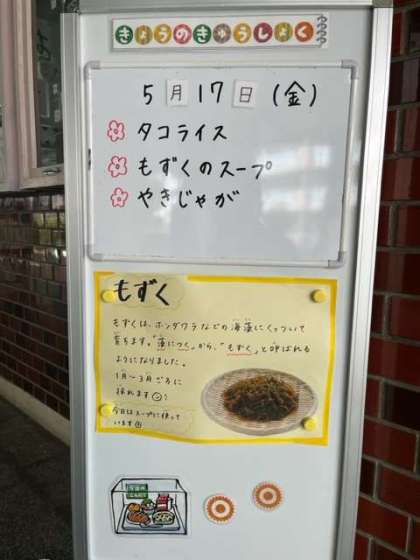 きょうのきゅうしょく
5月17日(金)
タコライス
もずくのスープ
やきじゃが
もずく
もずくは、ホンダワラなどの海藻にくっついて
育ちます。「藻につく」から、"もずく"と呼ばれる
ようになりました。
1月〜3月ごろに
採れます
今日はスープに使って
います